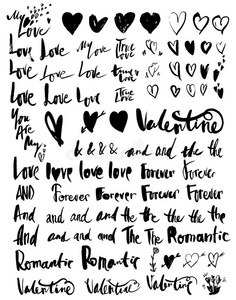 My
Love
Love Love My love True Love
Love Love Love true Love
Love Love Love True Love
You
Are
My
Valentine
& & & & and and the the
Love love love love Forever Forever
AND Forever Forever Forever Forever
And and and and the the the the the
And and and and The The Romantic
Romantic Romantic
Valentine Valentine Valentine